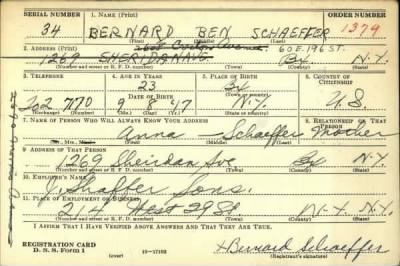 SERIAL NUMBER 1. NAME (Print) ORDER NUMBER
34 BERNARD BEN SCHAEFFER 1379
(First) (Middle) (Last)
2. ADDRESS (Print) 60 E. 196 ST.
1269 SHERIDAN AVE Bx N.Y.
(Number and street or R. F. D. number) (Town) (County) (State)
3. TELEPHONE 4. AGE IN YEARS 5. PLACE OF BIRTH 6. COUNTRY OF CITIZENSHIP
23 Bx
DATE OF BIRTH (Town or county)
7710 9 8 17 N.Y. U.S.
(Exchange) (Number) (Mo.) (Day) (Yr.) (State or country)
7. NAME OF PERSON WHO WILL ALWAYS KNOW YOUR ADDRESS 8. RELATIONSHIP OF THAT PERSON
Anna Schaeffer Mother
(Mr., Mrs., Miss) (First) (Middle) (Last)
9. ADDRESS OF THAT PERSON
1269 Sheridan Ave Bx N.Y.
(Number and street or R. F. D. number) (Town) (County) (State)
10. EMPLOYER'S NAME
J. Shaffer Sons.
11. PLACE OF EMPLOYMENT OR BUSINESS
214 West 29 St N-Y. N.Y.
(Number and street or R. F. D. number) (Town) (County) (State)
I AFFIRM THAT I HAVE VERIFIED ABOVE ANSWERS AND THAT THEY ARE TRUE.
REGISTRATION CARD
D. S. S. Form 1 (over) 16-17105 Bernard Schaeffer
(Registrant's signature)